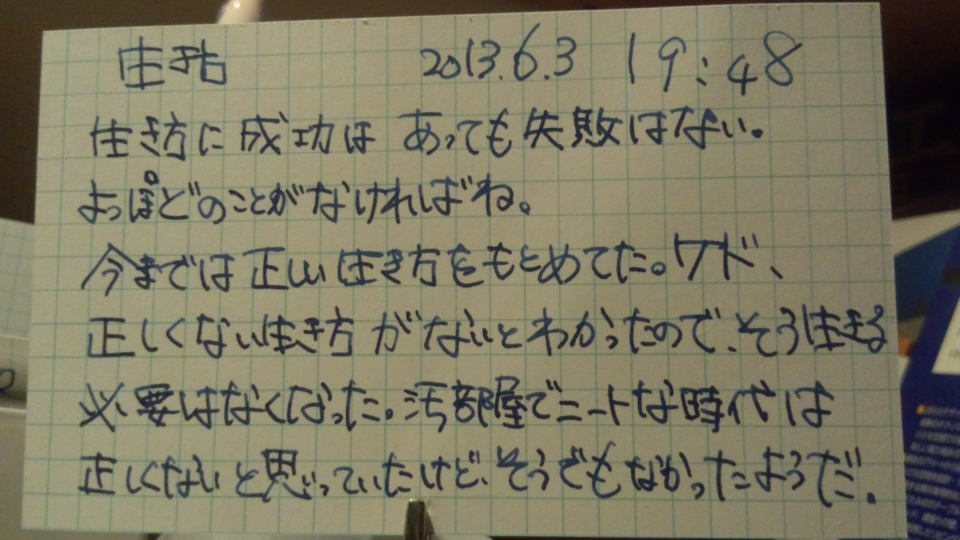 生き方 2013.6.3 19:48
生き方に成功はあっても失敗はない。
よっぽどのことがなければね。
今までは正しい生き方をもとめてた。ケド、
正しくない生き方がないとわかったので、そう生きる
必要はなくなった。汚部屋でニートな時代は
正しくないと思っていたけど、そうでもなかったようだ。